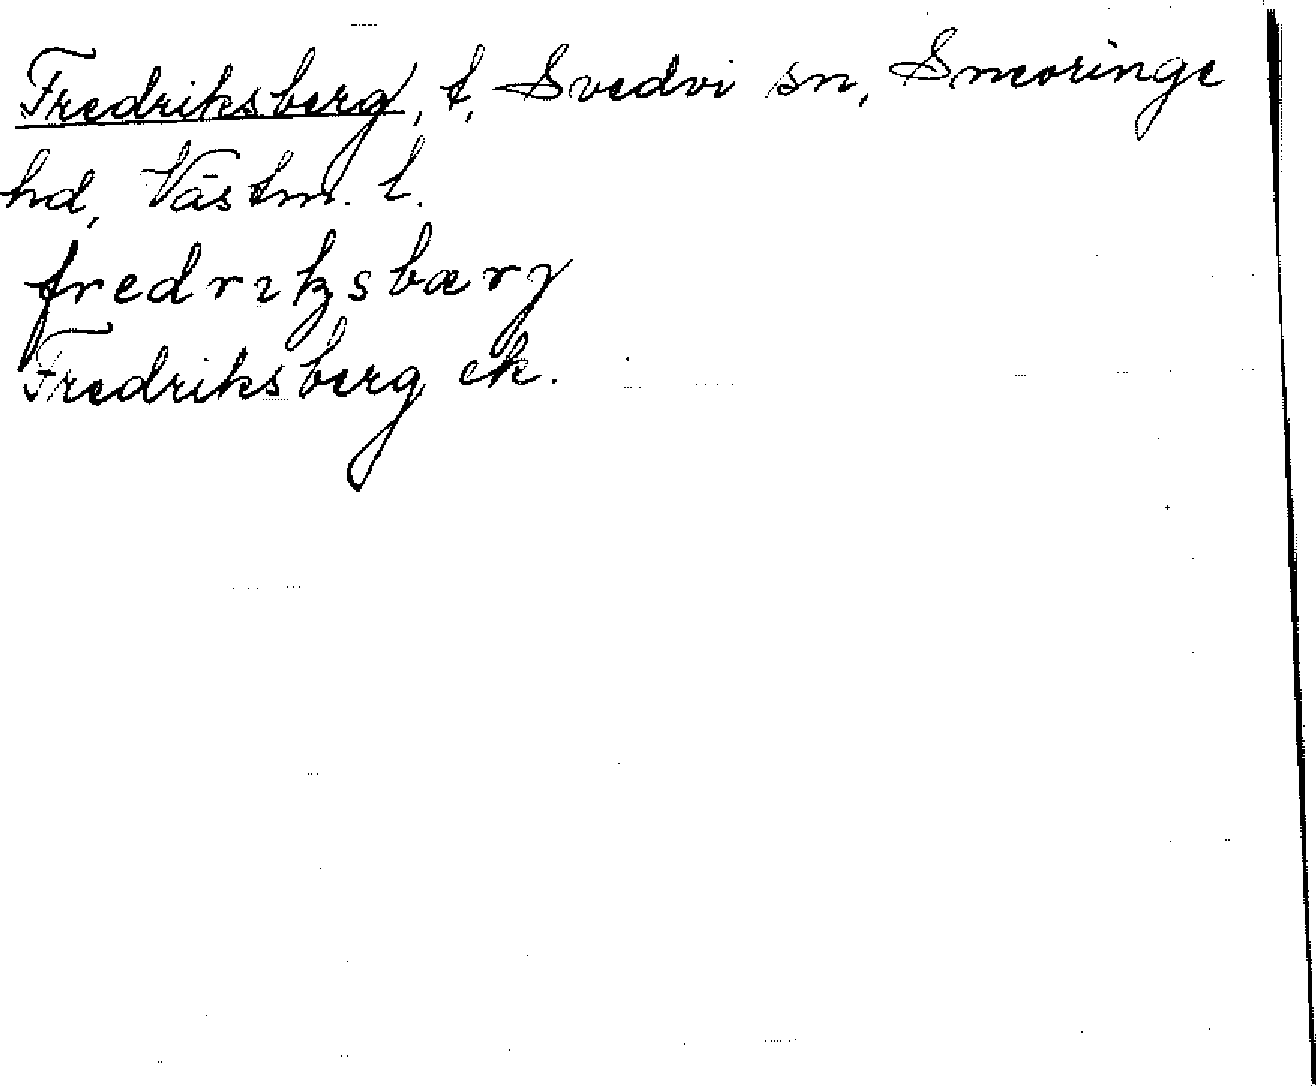 Fredriksberg, t, Svedvi sn, Snevringe
hd, Västm. l.
fredrıksbærg
Fredriksberg ek.